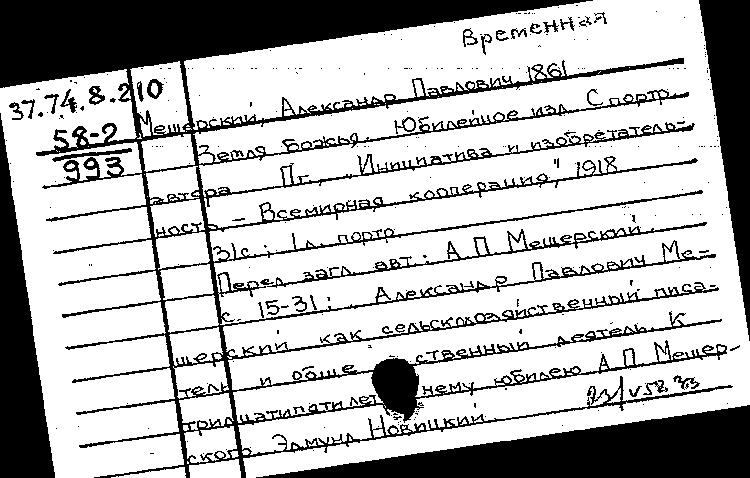 Временная
37.74.8.210
58-2
993
Мещерский, Александр Павлович, 1861
Земля Божья. Юбилейное изд. С портр.
автора Пг., "Инициатива и изобретатель-
ность. – Всемирная кооперация", 1918
31с.; 1 л. портр.
Перед загл. авт.: А П Мещерский.
с. 15-31: Александр Павлович Ме-
щерский как сельскохозяйственный писа-
тель и обще ственный деятель. К
тридцатипятилет нему юбилею А П Мещер-
ского. Эдмунд Новицкий.